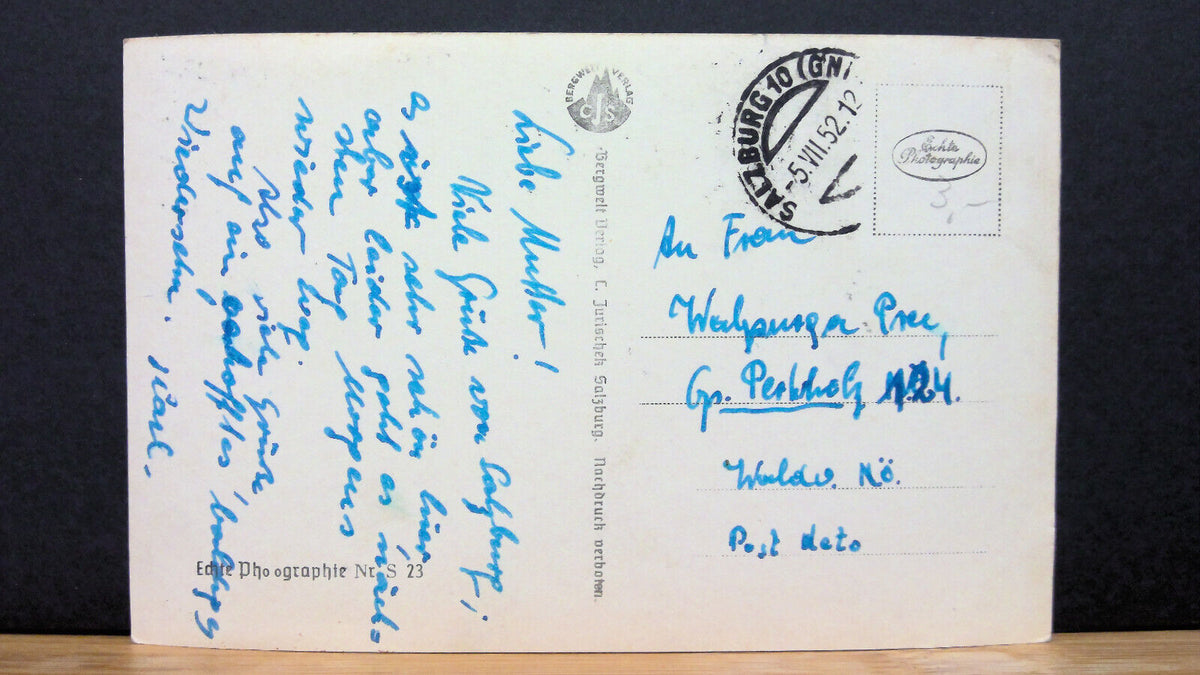 Liebe Mutter!
Viele Grüße von Salzburg,
es ist sehr schön hier
aber leider geht es näch-
sten Tag Morgens
wieder weg.
Also viele Grüße
auf ein erhofftes baldiges
Wiedersehn. Karl.
Echte Pho ographie Nr. S 23
BERGWELT VERLAG
CJS
Bergwelt Verlag, C. Jurischek Salzburg. Nachdruck verboten.
SALZBURG 10 (GNI
-5.VII.52.12
Echte
Photographie
An Frau
Walpurga
Gp. Perkholz 24.
Waldv. NÖ.
Post dato